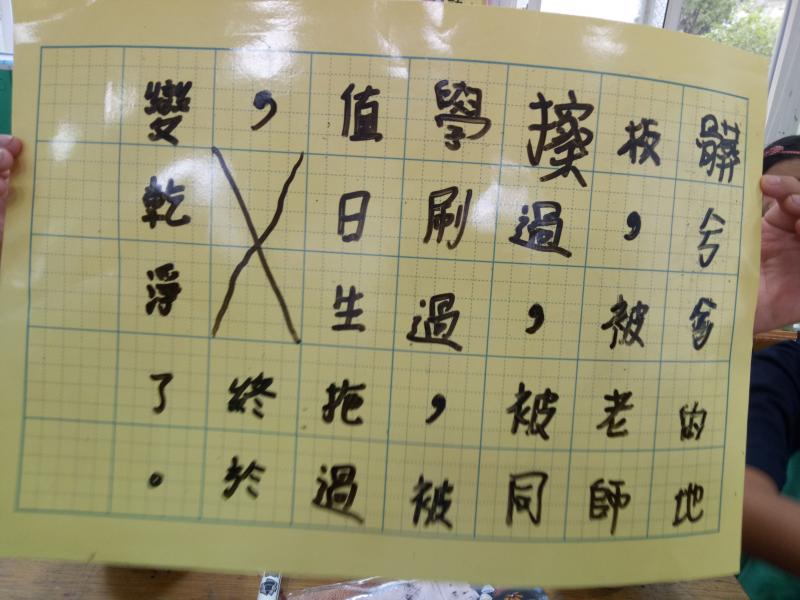 髒兮兮的地
板,被老師
擦過,被同
學刷過,被
值日生拖過
,終於
變乾淨了。